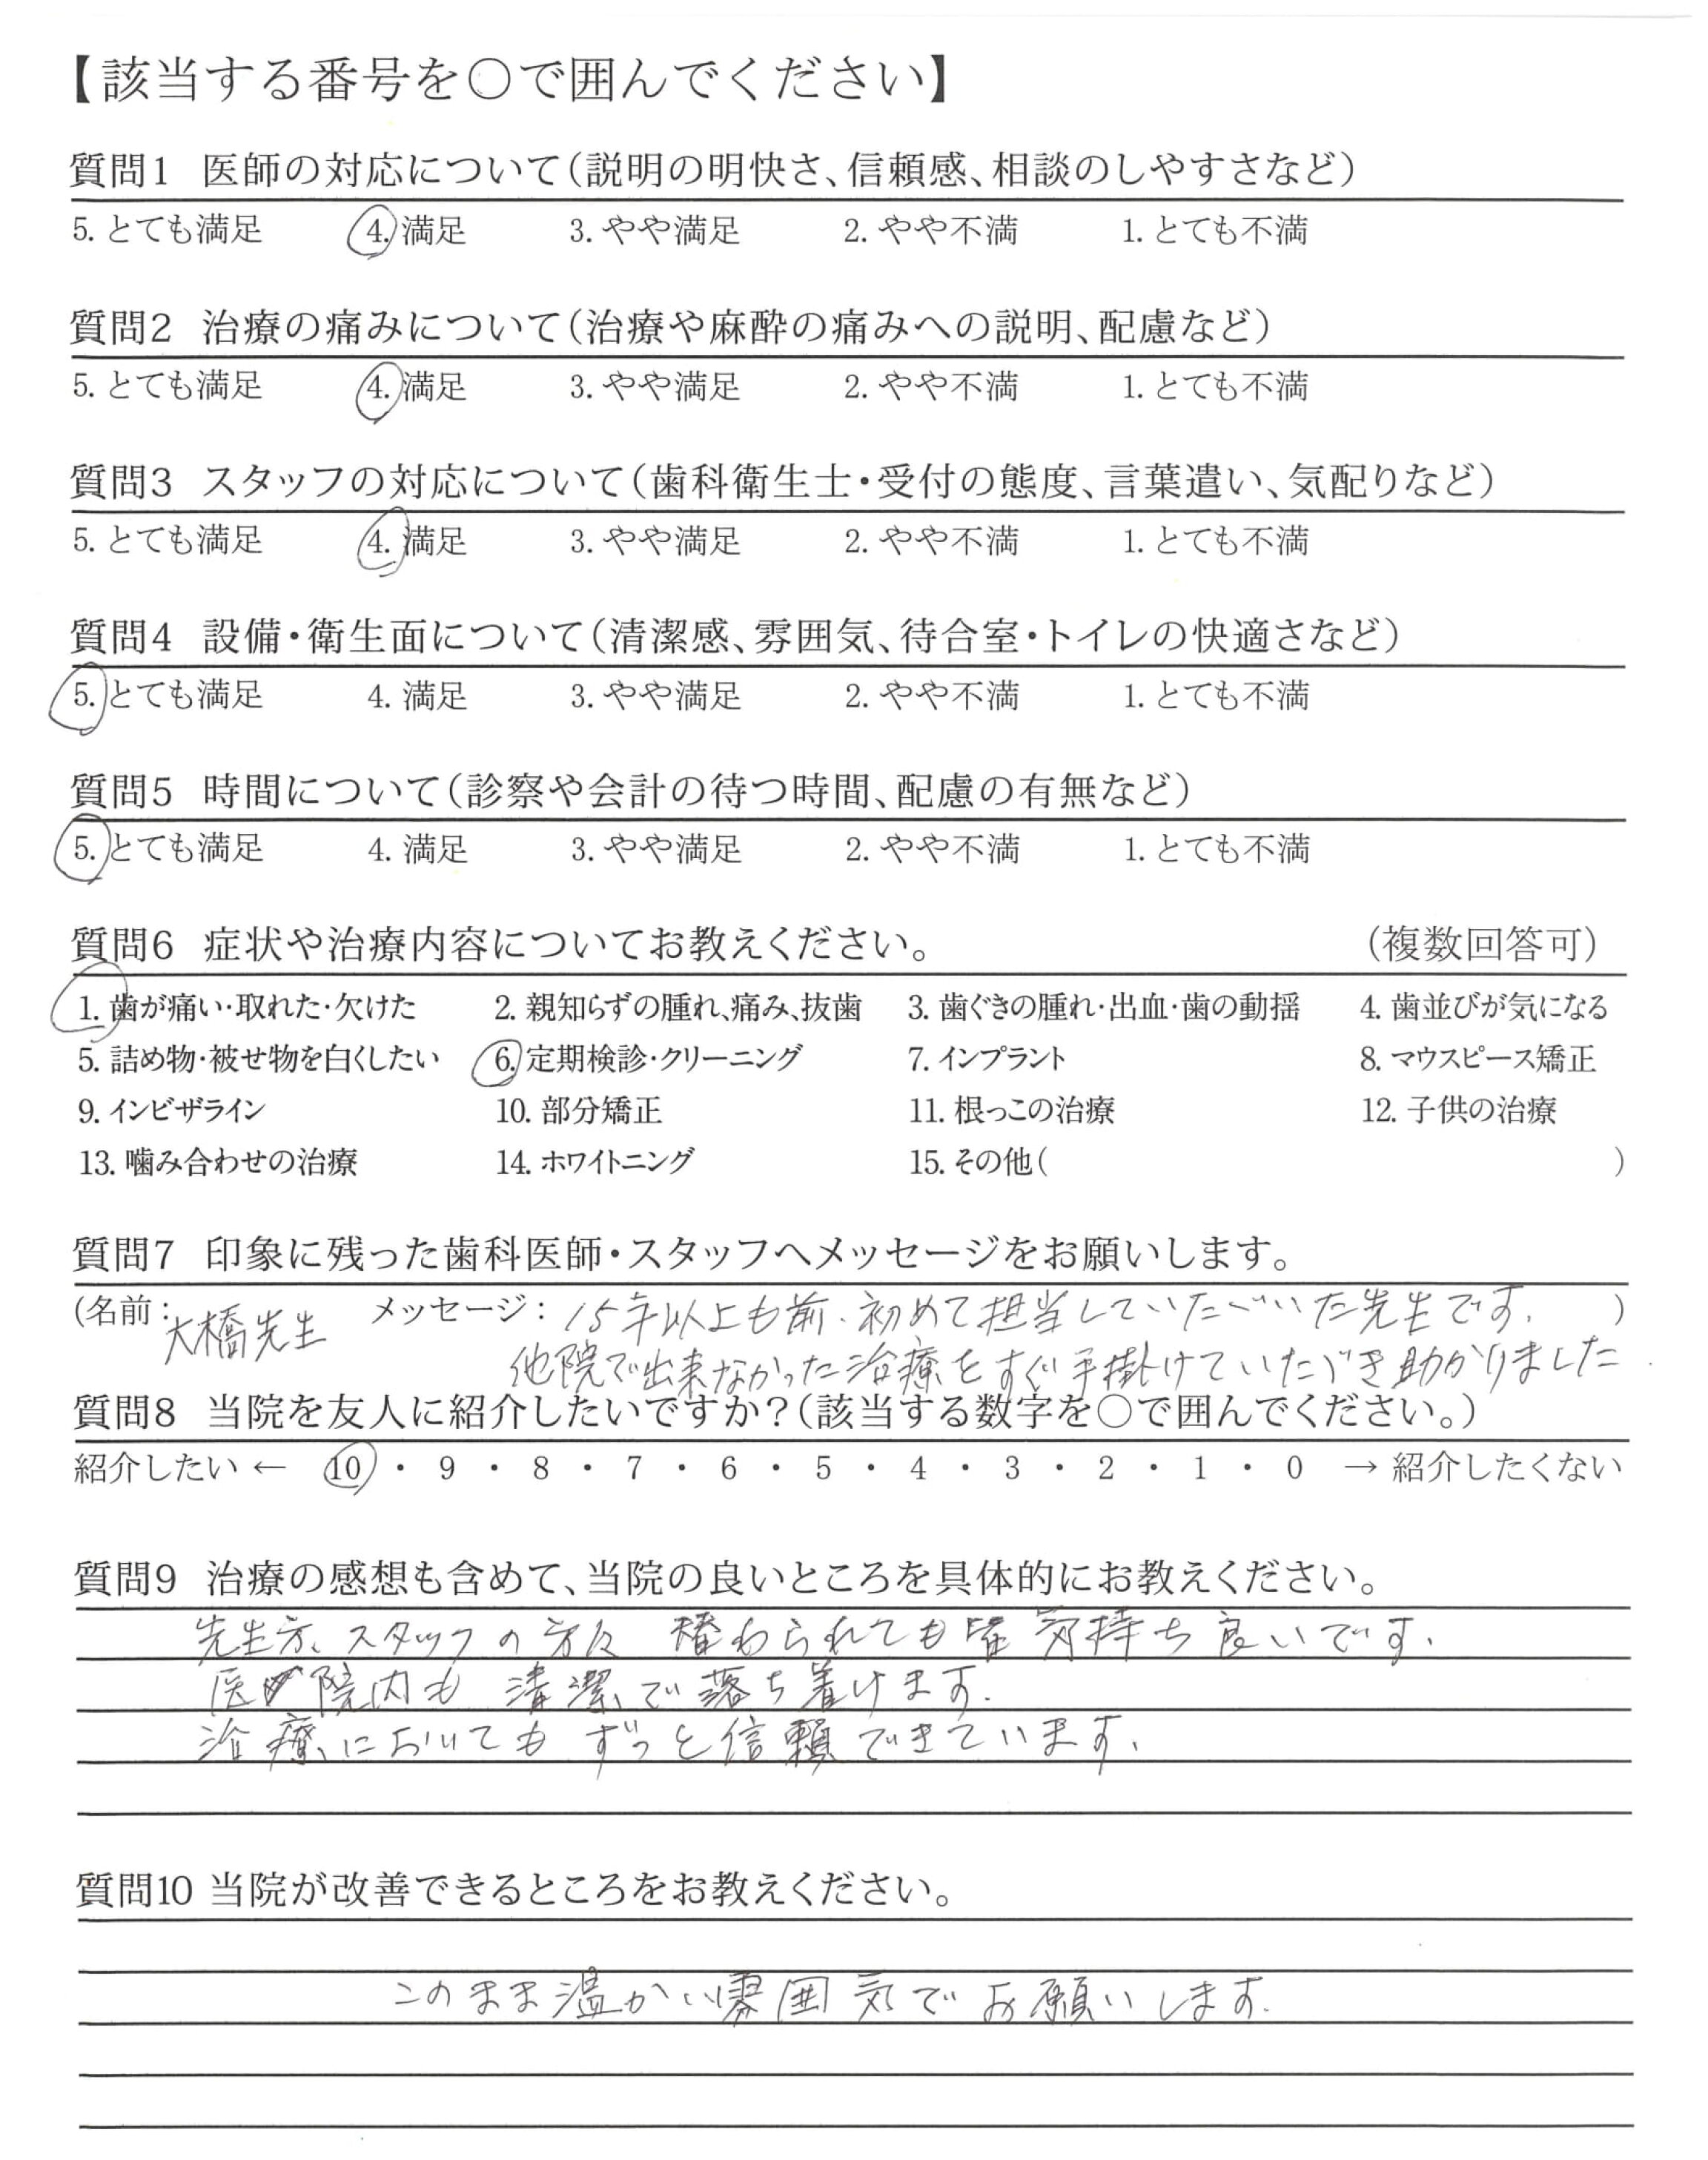 【該当する番号を○で囲んでください】
質問1 医師の対応について(説明の明快さ、信頼感、相談のしやすさなど)
5. とても満足 4. 満足 3. やや満足 2. やや不満 1. とても不満
質問2 治療の痛みについて(治療や麻酔の痛みへの説明、配慮など)
5. とても満足 4. 満足 3. やや満足 2. やや不満 1. とても不満
質問3 スタッフの対応について(歯科衛生士・受付の態度、言葉遣い、気配りなど)
5. とても満足 4. 満足 3. やや満足 2. やや不満 1. とても不満
質問4 設備・衛生面について(清潔感、雰囲気、待合室・トイレの快適さなど)
5. とても満足 4. 満足 3. やや満足 2. やや不満 1. とても不満
質問5 時間について(診察や会計の待つ時間、配慮の有無など)
5. とても満足 4. 満足 3. やや満足 2. やや不満 1. とても不満
質問6 症状や治療内容についてお教えください。 (複数回答可)
1. 歯が痛い・取れた・欠けた 2. 親知らずの腫れ、痛み、抜歯 3. 歯ぐきの腫れ・出血・歯の動揺 4. 歯並びが気になる
5. 詰め物・被せ物を白くしたい 6. 定期検診・クリーニング 7. インプラント 8. マウスピース矯正
9. インビザライン 10. 部分矯正 11. 根っこの治療 12. 子供の治療
13. 噛み合わせの治療 14. ホワイトニング 15. その他( )
質問7 印象に残った歯科医師・スタッフへメッセージをお願いします。
(名前:大橋先生 メッセージ: 15年以上も前、初めて担当していただいた先生です。 )
他院で出来なかった治療をすぐ手掛けていただき助かりました
質問8 当院を友人に紹介したいですか?(該当する数字を○で囲んでください。)
紹介したい ← 10 ・ 9 ・ 8 ・ 7 ・ 6 ・ 5 ・ 4 ・ 3 ・ 2 ・ 1 ・ 0 → 紹介したくない
質問9 治療の感想も含めて、当院の良いところを具体的にお教えください。
先生方、スタッフの方々 替わられても皆気持ち良いです。
医院内も 清潔で落ち着けます。
治療においてもずっと信頼できています。
質問10 当院が改善できるところをお教えください。
このまま温かい雰囲気でお願いします。